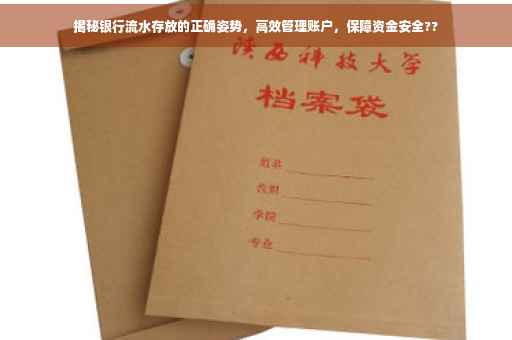 揭秘银行流水存放的正确姿势，高效管理账户，保障资金安全??
陕西科技大学
档案袋
姓名
学院
专业